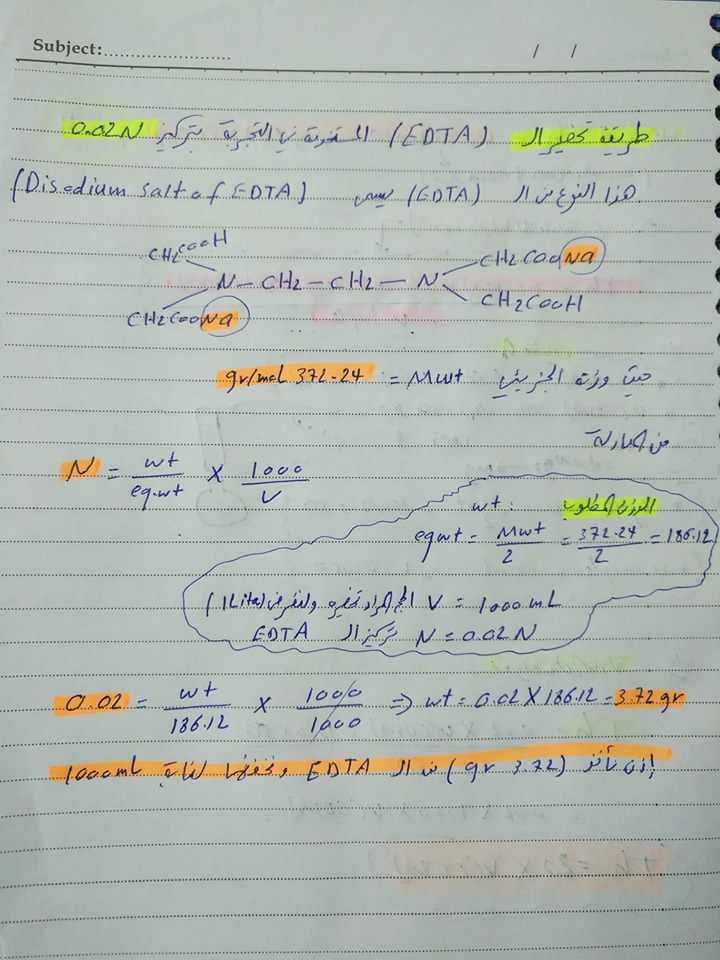 Subject:........................ / /
طريقة تحضير ال (EDTA) المستخدمة في التجربة بتركيز 0.02N
هذا النوع من ال (EDTA) يسمى (Disodium salt of EDTA)
CH2COOH CH2COONa
N-CH2-CH2-N
CH2COONa CH2COOH
حيث وزنه الجزيئي Mwt = 372.24 gr/mol
من المعادلة
N = wt/eq.wt X 1000/V
wt : الوزن المطلوب
eqwt = Mwt/2 = 372.24/2 = 186.12
V = 1000mL الحجم المراد تحضيره ولنفرض (1Liter)
N = 0.02N تركيز ال EDTA
0.02 = wt/186.12 X 1000/1000 => wt = 0.02 X 186.12 = 3.72 gr
إذن نأخذ (3.72 gr) من ال EDTA ونخففها لغاية 1000mL